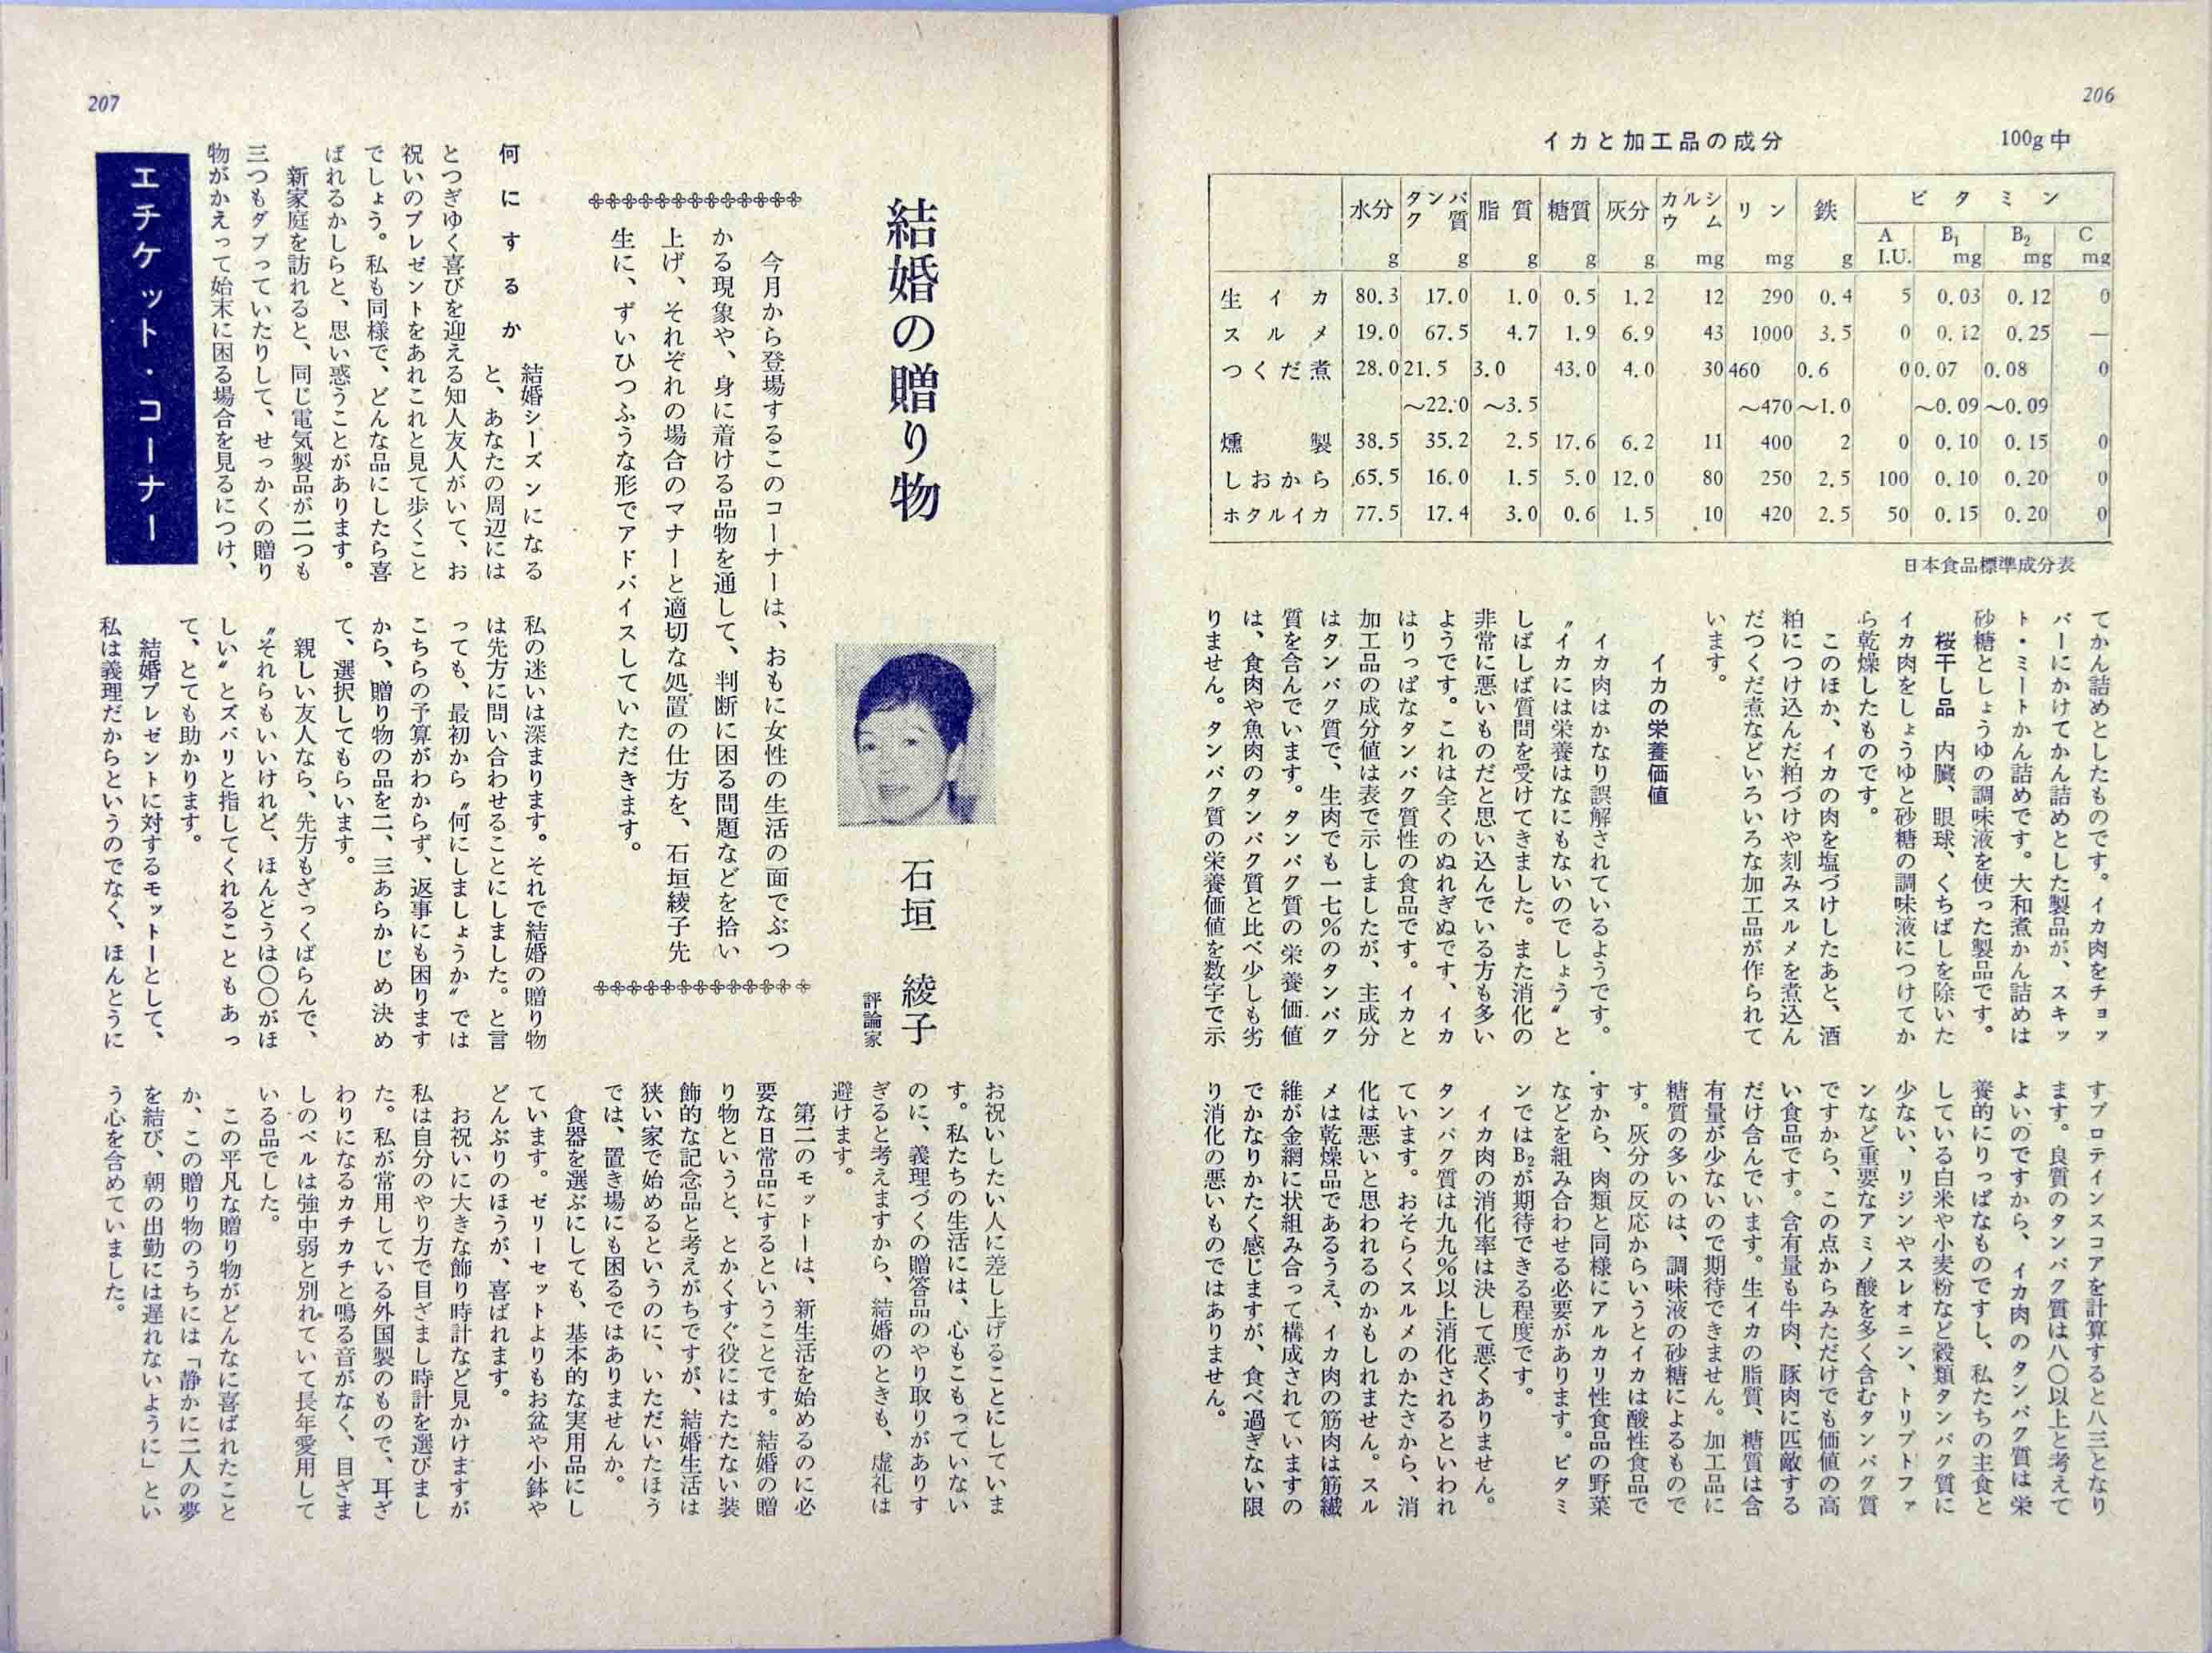 206
イカと加工品の成分 100g中
水分 タンパク質 脂質 糖質 灰分 カルシウム リン 鉄 ビタミン
A B₁ B₂ C
g g g g g mg mg g I.U. mg mg mg
生イカ 80.3 17.0 1.0 0.5 1.2 12 290 0.4 5 0.03 0.12 0
スルメ 19.0 67.5 4.7 1.9 6.9 43 1000 3.5 0 0.12 0.25 —
つくだ煮 28.0 21.5 3.0 43.0 4.0 30 460 0.6 0 0.07 0.08 0
〜22.0 〜3.5 〜470 〜1.0 〜0.09 〜0.09
燻製 38.5 35.2 2.5 17.6 6.2 11 400 2 0 0.10 0.15 0
しおから 65.5 16.0 1.5 5.0 12.0 80 250 2.5 100 0.10 0.20 0
ホタルイカ 77.5 17.4 3.0 0.6 1.5 10 420 2.5 50 0.15 0.20 0
日本食品標準成分表
てかん詰めとしたものです。イカ肉をチョッ
パーにかけてかん詰めとした製品が、スキッ
ト・ミートかん詰めです。大和煮かん詰めは
砂糖としょうゆの調味液を使った製品です。
桜干し品 内臓、眼球、くちばしを除いた
イカ肉をしょうゆと砂糖の調味液につけてか
ら乾燥したものです。
このほか、イカの肉を塩づけしたあと、酒
粕につけ込んだ粕づけや刻みスルメを煮込ん
だつくだ煮などいろいろな加工品が作られて
います。
イカの栄養価値
イカ肉はかなり誤解されているようです。
〝イカには栄養はなにもないのでしょう〟と
しばしば質問を受けてきました。また消化の
非常に悪いものだと思い込んでいる方も多い
ようです。これは全くのぬれぎぬです、イカ
はりっぱなタンパク質性の食品です。イカと
加工品の成分値は表で示しましたが、主成分
はタンパク質で、生肉でも一七％のタンパク
質を含んでいます。タンパク質の栄養価値
は、食肉や魚肉のタンパク質と比べ少しも劣
りません。タンパク質の栄養価値を数字で示
すプロテインスコアを計算すると八三となり
ます。良質のタンパク質は八〇以上と考えて
よいのですから、イカ肉のタンパク質は栄
養的にりっぱなものですし、私たちの主食と
している白米や小麦粉など穀類タンパク質に
少ない、リジンやスレオニン、トリプトファ
ンなど重要なアミノ酸を多く含むタンパク質
ですから、この点からみただけでも価値の高
い食品です。含有量も牛肉、豚肉に匹敵する
だけ含んでいます。生イカの脂質、糖質は含
有量が少ないので期待できません。加工品に
糖質の多いのは、調味液の砂糖によるもので
す。灰分の反応からいうとイカは酸性食品で
すから、肉類と同様にアルカリ性食品の野菜
などを組み合わせる必要があります。ビタミ
ンではB₂が期待できる程度です。
イカ肉の消化率は決して悪くありません。
タンパク質は九九％以上消化されるといわれ
ています。おそらくスルメのかたさから、消
化は悪いと思われるのかもしれません。スル
メは乾燥品であるうえ、イカ肉の筋肉は筋繊
維が金網に状組み合って構成されていますの
でかなりかたく感じますが、食べ過ぎない限
り消化の悪いものではありません。
207
結婚の贈り物
石垣 綾子
評論家
今月から登場するこのコーナーは、おもに女性の生活の面でぶつ
かる現象や、身に着ける品物を通して、判断に困る問題などを拾い
上げ、それぞれの場合のマナーと適切な処置の仕方を、石垣綾子先
生に、ずいひつふうな形でアドバイスしていただきます。
何にするか
結婚シーズンになる
と、あなたの周辺には
とつぎゆく喜びを迎える知人友人がいて、お
祝いのプレゼントをあれこれと見て歩くこと
でしょう。私も同様で、どんな品にしたら喜
ばれるかしらと、思い惑うことがあります。
新家庭を訪れると、同じ電気製品が二つも
三つもダブっていたりして、せっかくの贈り
物がかえって始末に困る場合を見るにつけ、
エチケット・コーナー
私の迷いは深まります。それで結婚の贈り物
は先方に問い合わせることにしました。と言
っても、最初から〝何にしましょうか〟では
こちらの予算がわからず、返事にも困ります
から、贈り物の品を二、三あらかじめ決め
て、選択してもらいます。
親しい友人なら、先方もざっくばらんで、
〝それらもいいけれど、ほんとうは〇〇がほ
しい〟とズバリと指してくれることもあっ
て、とても助かります。
結婚プレゼントに対するモットーとして、
私は義理だからというのでなく、ほんとうに
お祝いしたい人に差し上げることにしていま
す。私たちの生活には、心もこもっていない
のに、義理づくの贈答品のやり取りがありす
ぎると考えますから、結婚のときも、虚礼は
避けます。
第二のモットーは、新生活を始めるのに必
要な日常品にするということです。結婚の贈
り物というと、とかくすぐ役にはたたない装
飾的な記念品と考えがちですが、結婚生活は
狭い家で始めるというのに、いただいたほう
では、置き場にも困るではありませんか。
食器を選ぶにしても、基本的な実用品にし
ています。ゼリーセットよりもお盆や小鉢や
どんぶりのほうが、喜ばれます。
お祝いに大きな飾り時計など見かけますが
私は自分のやり方で目ざまし時計を選びまし
た。私が常用している外国製のもので、耳ざ
わりになるカチカチと鳴る音がなく、目ざま
しのベルは強中弱と別れていて長年愛用して
いる品でした。
この平凡な贈り物がどんなに喜ばれたこと
か、この贈り物のうちには「静かに二人の夢
を結び、朝の出勤には遅れないように」とい
う心を含めていました。